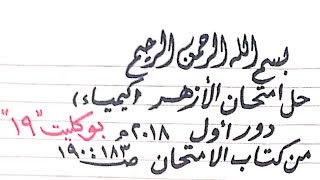 بسم الله الرحمن الرحيم
حل امتحان الأزهر (كيمياء)
دور أول ٢٠١٨م بوكليت "١٩"
من كتاب الامتحان صـ ١٨٣ : ١٩٠